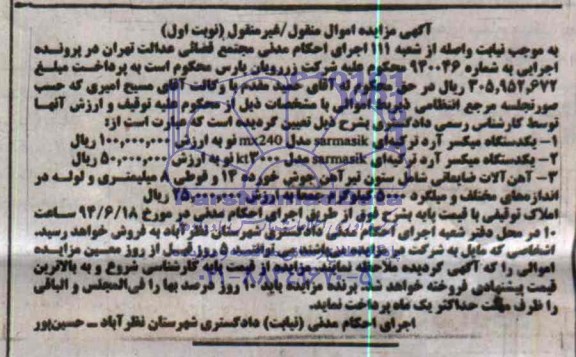 آگهی مزایده اموال منقول/غیرمنقول (نوبت اول)
به موجب نیابت واصله از شعبه ۱۱۱ اجرای احکام مدنی مجتمع قضائی عدالت تهران در پرونده
اجرایی به شماره ۹۳۰۰۴۶ محکوم علیه شرکت زررویان پارس محکوم است به پرداخت مبلغ
۳۰۵,۹۵۲,۶۷۲ ریال در حق محکوم له آقای حمید مقدم با وکالت آقای مسیح امیری که حسب
صورتجلسه مرجع انتظامی ذیربط اموالی با مشخصات ذیل از محکوم علیه توقیف و ارزش آنها
توسط کارشناس رسمی دادگستری بشرح ذیل تعیین گردیده است که عبارت است از:
۱- یکدستگاه میکسر آرد ترکیه‌ای sarmasik مدل mx240 نو به ارزش ۱۰۰,۰۰۰,۰۰۰ ریال
۲- یکدستگاه میکسر آرد ترکیه‌ای sarmasik مدل kt۳۰۰۰ نو به ارزش ۵۰,۰۰۰,۰۰۰ ریال
۳- آهن‌آلات ضایعاتی شامل ستون تیرآهن جوش خورده ۱۴ و قوطی ۸ میلیمتری و لوله در
اندازه‌های مختلف و میلگرد ۵۰۰۰ کیلوگرم جمعا به ارزش ۲۵,۰۰۰,۰۰۰ ریال
املاک توقیفی با قیمت پایه بشرح فوق از طریق اجرای احکام مدنی در مورخ ۹۴/۶/۱۸ ساعت
۱۰ در محل دفتر شعبه اجرای احکام مدنی دادگستری شهرستان نظرآباد به فروش خواهد رسید.
اشخاصی که مایل به شرکت در مزایده می‌باشند می‌توانند ۵ روز قبل از روز معین مزایده
اموالی را که آگهی گردیده ملاحظه نمایند. مزایده از قیمت پایه کارشناسی شروع و به بالاترین
قیمت پیشنهادی فروخته خواهد شد. برنده مزایده باید ۱۰ روز درصد بها را فی‌المجلس و الباقی
را ظرف مهلت حداکثر یک ماه پرداخت نماید.
اجرای احکام مدنی (نیابت) دادگستری شهرستان نظرآباد ـ حسین‌پور